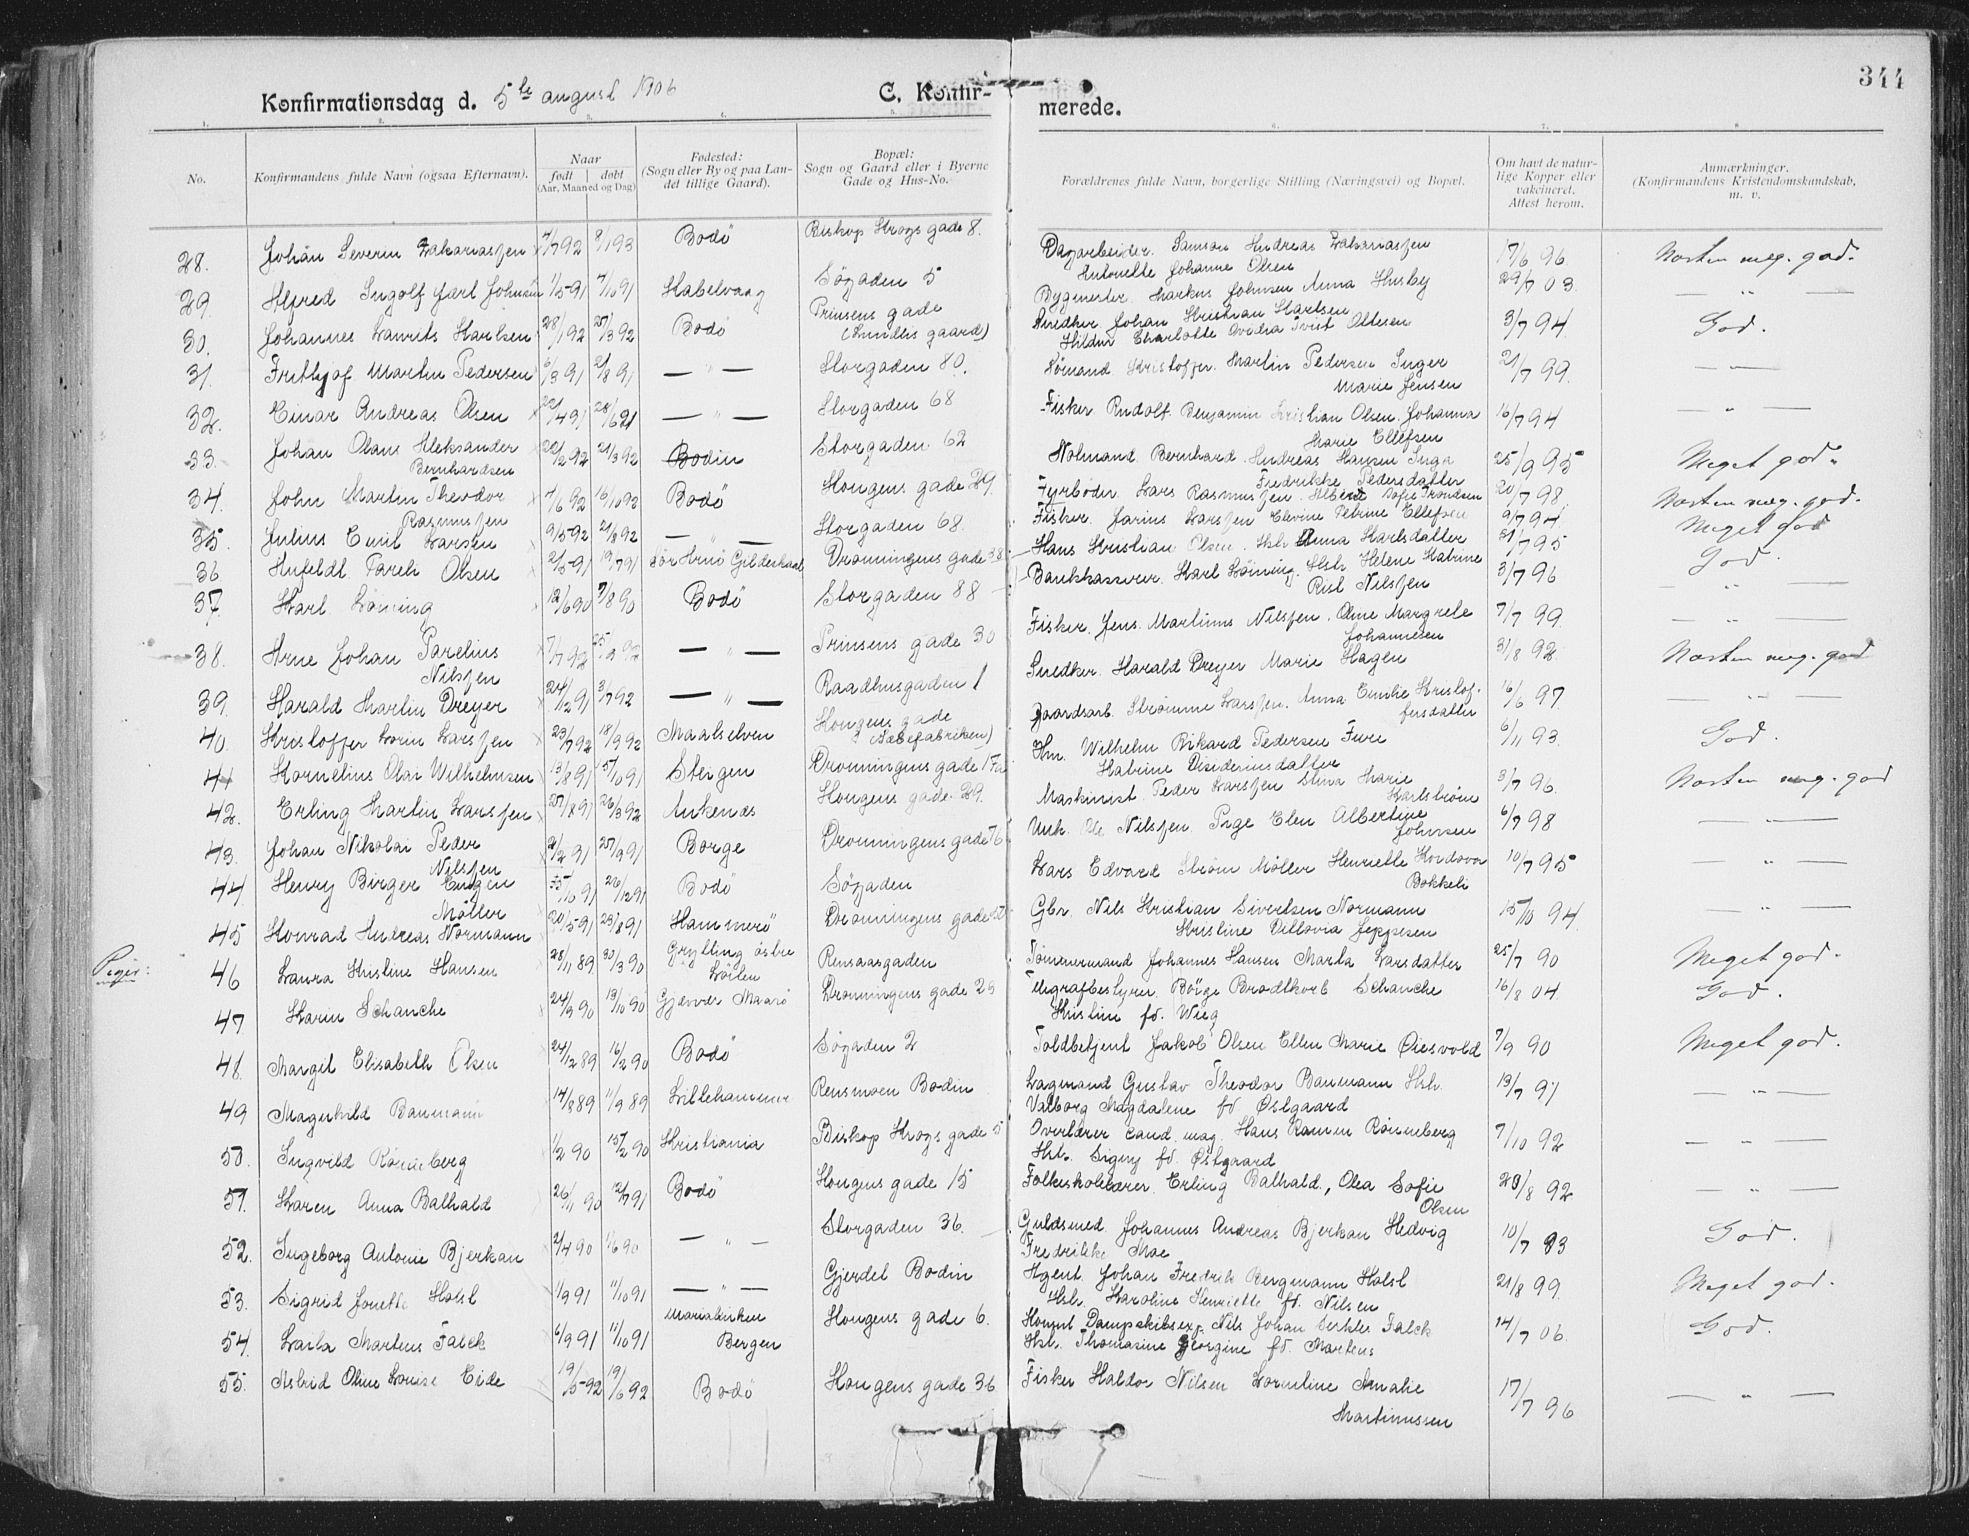 344
Konfirmationsdag d. 5te august 1906
C. Konfir-
merede.
1. 2. 3. 4. 5. 6. 7. 8.
No.
Konfirmandens fulde Navn (ogsaa Efternavn).
Naar
født døbt
(Aar, Maaned og Dag)
Fødested:
(Sogn eller By og paa Lan-
det tillige Gaard).
Bopæl:
Sogn og Gaard eller i Byerne
Gade og Hus-No.
Forældrenes fulde Navn, borgerlige Stilling (Næringsvei) og Bopæl.
Om havt de natur-
lige Kopper eller
vakcineret.
Attest herom.
Anmærkninger.
(Konfirmandens Kristendomskundskab,
m. v.
28. Johan Severin Zakariassen 4/7 92 8/1 93 Bodö Biskop Krogs gade 8. Dagarbeider. Samson Andreas Zakariassen 17/6 96 Næsten meg. god.
Antonette Johanne Olsen
29. Alfred Ingolf Jarl Johnsen 1/5 91 7/10 91 Kabelvaag Søgaden 5 Bygmester. Markus Johnsen Anna Husby 29/7 03. — " —
30. Johannes Laurits Karlsen 28/1 92 27/3 92 Bodö Prinsens gade Snedker Johan Kristian Karlsen 3/7 94 God.
31. Frithjof Martin Pedersen 6/3 91 21/8 91 — " — Storgaden 80. Sømand Kristoffer Martin Pedersen Inger 21/7 99. — " —
Marie Jensen
32. Einar Andreas Olsen 22/4 91 28/6 91 — " — Storgaden 68 Fisker Rudolf Benjamin Kristian Olsen. Johanna 16/7 94 — " —
Marie Ellefsen
33. Johan Olaus Aleksander 22/2 92 21/3 92 Bodin Storgaden 62 Notmand Bernhard Andreas Hansen Inga 25/9 95 Meget god.
Bernhardsen Fredrikke Pedersdatter
34. John Martin Theodor 4/6 92 16/10 92 Bodö Kongens gade 29 Fyrbøder. Lars Rasmussen. Sofie Trondsen 20/7 98. Næsten meg. god.
Rasmussen
35. Julius Emil Larsen 9/5 92 21/8 92 — " — Storgaden 68. Fisker. Jarius Larssen Elevine Petrine Ellefsen 9/7 94 Meget god
36 Pareli Olsen 19/7 91 Gildeskaal Dronningens gade 38. Hans Kristian Olsen. Hst. Anna Karlsdatter 31/7 95 God
37. Karl Löining 12/6 90 7/8 90 Bodö Storgaden 88 Bankkasserer. Karl Löining. Hst. Helene Katrine 3/7 96 — " —
Nilssen
38. Arne Johan Parelius 7/7 92 25/9 92 — " — Prinsens gade 30 Fisker. Jens Martinus Nilssen. Oline Margrete 7/7 99 — " —
Nilssen Johannesen
39. Harald Martin Dreyer 24/12 91 3/7 92 — " — Raadhusgaden 1 Snedker. Harald Dreyer Marie Hagen 31/8 92 Næsten meg. god
40. Kristoffer Lorin Larssen 23/7 92 18/9 92 Maalselven Kongens gade Gaardsarb. Strømme Larssen. Anna Emilie Kristof- 16/6 97 — " —
(Sæbefabriken) fersdatter
41 Kornelius Olai Wilhelmsen 13/8 91 15/10 91 Steigen Dronningens gade Hm. Wilhelm Rikard Pedersen Fure 6/11 93. God.
Katrine Desideriusdatter
42. Erling Martin Larssen 27/8 91 26/3 92 Ankenæs Kongens gade 29. Maskinist. Peder Larssen Stina Marie 3/7 96. Næsten meg. god
Karlstrøm
43. Johan Nikolai Peder 21/2 91 27/9 91 Borge Dronningens gade 76 Unk. Ole Nilssen Pige Elen Albertine 6/7 98 — " —
Nilssen Johnsen
44. Henry Birger Eugen 15/10 91 26/12 91 Bodö Søgaden Lars Edvard Strøm Møller Henriette Kordova 10/7 95 — " —
Møller Bokkeli
45 Konrad Andreas Normann 20/5 91 23/8 91 Hammerö Dronningens gade Gbr. Nils Kristian Sivertsen Normann 15/10 94. — " —
Kristine Ditlovia Jeppesen
Piger:
46 Laura Kristine Hansen 28/11 89 30/3 90 Grytting östre Rensaasgaden Tømmermand Johannes Hansen Marta Larsdatter 25/7 90 Meget god.
47 Karin Schanche 24/3 90 19/10 90 Gjesvær Maasö Dronningens gade 25 Telegrafbestyrer. Börge Brodtkorb Schanche 16/8 04. God.
Kristine fd. Wiig
48. Margit Elisabeth Olsen 24/12 89 16/2 90 Bodö Søgaden 2 Toldbetjent Jakob Olsen Ellen Marie Øiesvold 7/9 90 Meget god.
49 Magnhild Baumann 14/8 89 11/9 89 Lillehammer Rensmoen Bodin Lagmand Gustav Theodor Baumann Hst. 13/7 91 — " —
Valborg Magdalene fd Østgaard
50. Ingvild Rønneberg 1/2 90 15/2 90 Kristiania Biskop Krogs gade 5 Overlærer cand. mag. Hans Ramm Rønneberg 7/10 92 — " —
Hst. Signy fd. Østgaard
51. Karen Anna Balhald 26/11 90 12/7 91 Bodö Kongens gade 15 Folkeskolelærer Erling Balhald, Olea Sofie 23/8 92 — " —
Olsen
52. Ingeborg Antonie Bjerkan 2/4 90 1/6 90 — " — Storgaden 36. Guldsmed Johannes Andreas Bjerkan Hedvig 10/7 93 God.
Fredrikke Moe
53. Sigrid Jonette Holst 1/9 91 11/10 91 — " — Gjerdet Bodin Agent Johan Fredrik Bergmann Holst 21/8 99. Meget god.
Hst. Karoline Henriette fd. Nilsen
54. Laila Martens Falck 6/9 91 11/10 91 Mariakirken Kongens gade 6. Dampskibsexp. Nils Johan Falck 14/7 06. God.
Bergen Hst. Thomasine Georgine fd. Martens
55. Astrid Oline Louise Eide 19/5 92 19/6 92 Bodö Kongens gade 36 Fisker Haldor Nilsen Lorentine Amalie 17/7 96 — " —
Martinussen